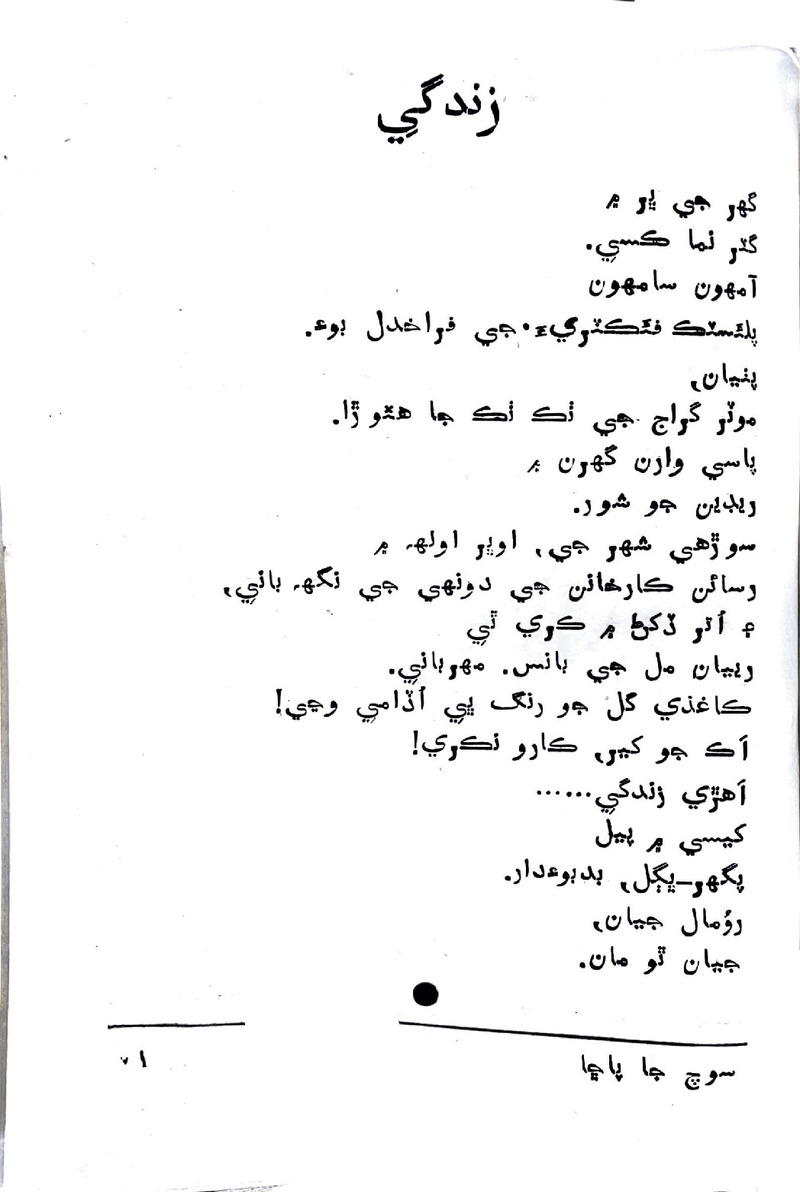 زندگي
گهر جي ڀر ۾
گٽر نما ڪسي.
آمهون سامهون
پلئسٽڪ فئڪٽريءَ جي فراخدل بوءِ.
پٺيان،
موٽر گراج جي ٺڪ ٺڪ جا هٿوڙا.
پاسي وارن گهرن ۾
ريڊين جو شور.
سوڙهي شهر جي، اوڀر اولهه ۾
رسائن ڪارخانن جي دونهي جي نگهه باني،
۽ اُتر ڏکڻ ۾ ڪري ٿي
ريان مل جي بانس. مهرباني.
ڪاغذي گل جو رنگ پي اُڏامي وڃي!
اَڪ جو کير، ڪارو نڪري!
اَهڙي زندگي......
کيسي ۾ پيل
پگهر-ڀڳل، بدبوءدار.
رؤمال جيان،
جيان ٿو مان.
سوچ جا پاڇا